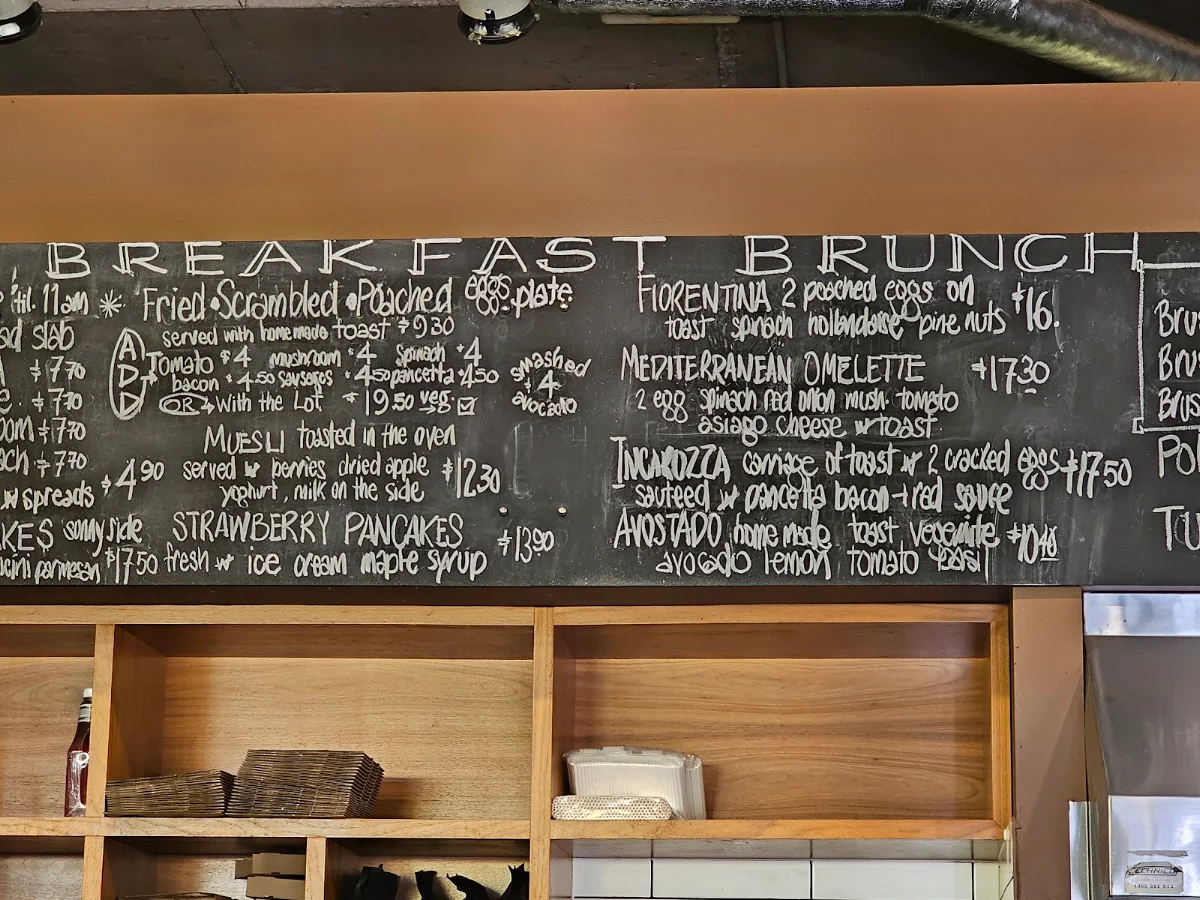 BREAKFAST BRUNCH
'til 11am
slab
$7.70
$7.70
$7.70
$7.70
w spreads $4.90
sunny side
parmesan $17.50
* Fried • Scrambled • Poached eggs plate
served with homemade toast $9.30
ADD Tomato $4 mushroom $4 Spinach $4
bacon $4.50 sausages $4.50 pancetta $4.50
smashed $4 avocado
OR → With the Lot $19.50 veg ☑
MUESLI toasted in the oven
served w berries dried apple $12.30
yoghurt, milk on the side
STRAWBERRY PANCAKES $13.90
fresh w ice cream maple syrup
FIORENTINA 2 poached eggs on $16.
toast spinach hollandaise pine nuts
MEDITERRANEAN OMELETTE $17.30
2 egg spinach red onion mush. tomato
asiago cheese w toast
INCAROZZA carriage of toast w 2 cracked eggs $17.50
sauteed w pancetta bacon + red sauce
AVOSTADO home made toast vegemite
avocado lemon tomato